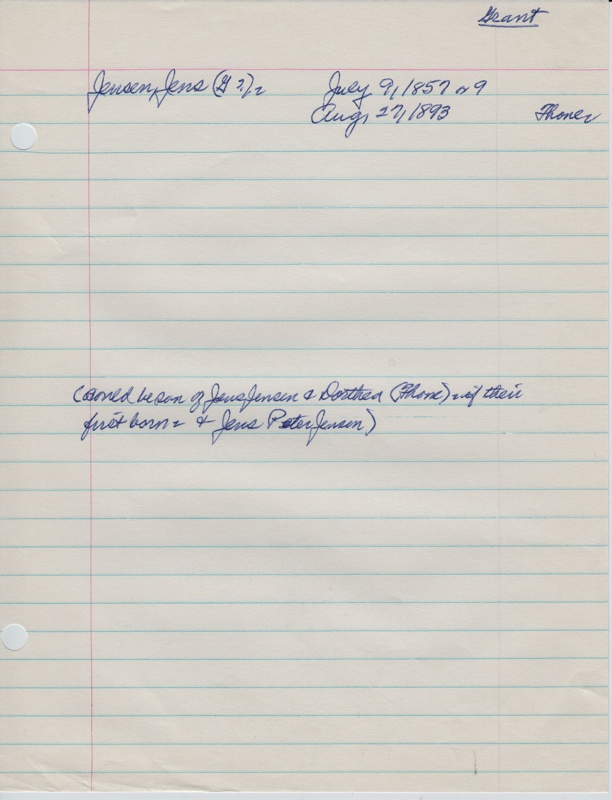 Grant
Jensen, Jens (G ?)
July 9, 1857 or 9
Aug, 27, 1893
(could be son of Jens Jensen & Dorthea (Thone) if their
first born & Jens Peter Jensen)